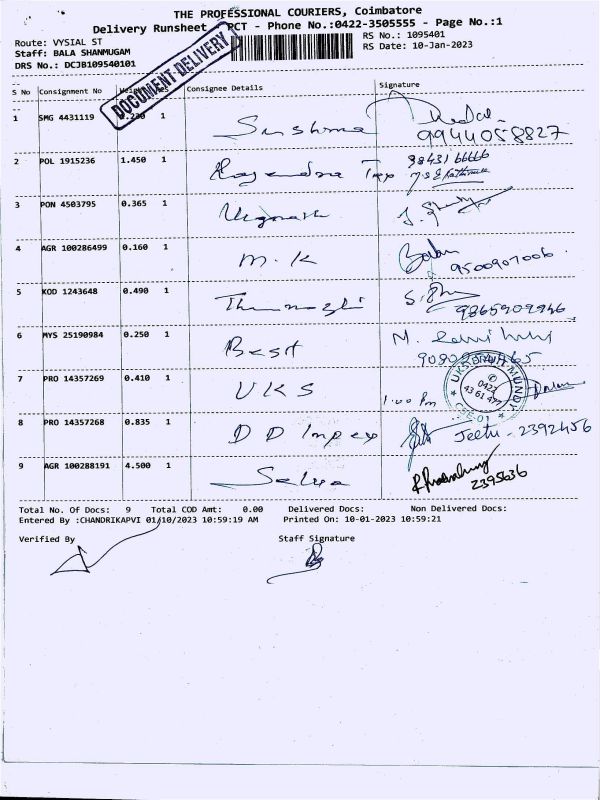 THE PROFESSIONAL COURIERS, Coimbatore
Delivery Runsheet PCT - Phone No.:0422-3505555 - Page No.:1
Route: VYSIAL ST
RS No.: 1095401
Staff: BALA SHANMUGAM
RS Date: 10-Jan-2023
DRS No.: DCJB109540101
DOCUMENT DELIVERY
S No Consignment No Consignee Details Signature
1 SMG 4431119 1 Sushma
9944058827
2 POL 1915236 1.450 1 Rajendra Tex 98431 66666
3 PON 4503795 0.365 1 Vignesh
4 AGR 100286499 0.160 1 M. K Balan
9500907006
5 KOD 1243648 0.490 1
9865909946
6 MYS 25190984 0.250 1 Best M.
7 PRO 14357269 0.410 1 UKS 1:00 Pm
0422
43 61 477
CBE-01
8 PRO 14357268 0.835 1 D D Impex Jeetu - 2392456
9 AGR 100288191 4.500 1 Selva
2395636
Total No. Of Docs: 9 Total COD Amt: 0.00 Delivered Docs: Non Delivered Docs:
Entered By :CHANDRIKAPVI 01/10/2023 10:59:19 AM Printed On: 10-01-2023 10:59:21
Verified By Staff Signature